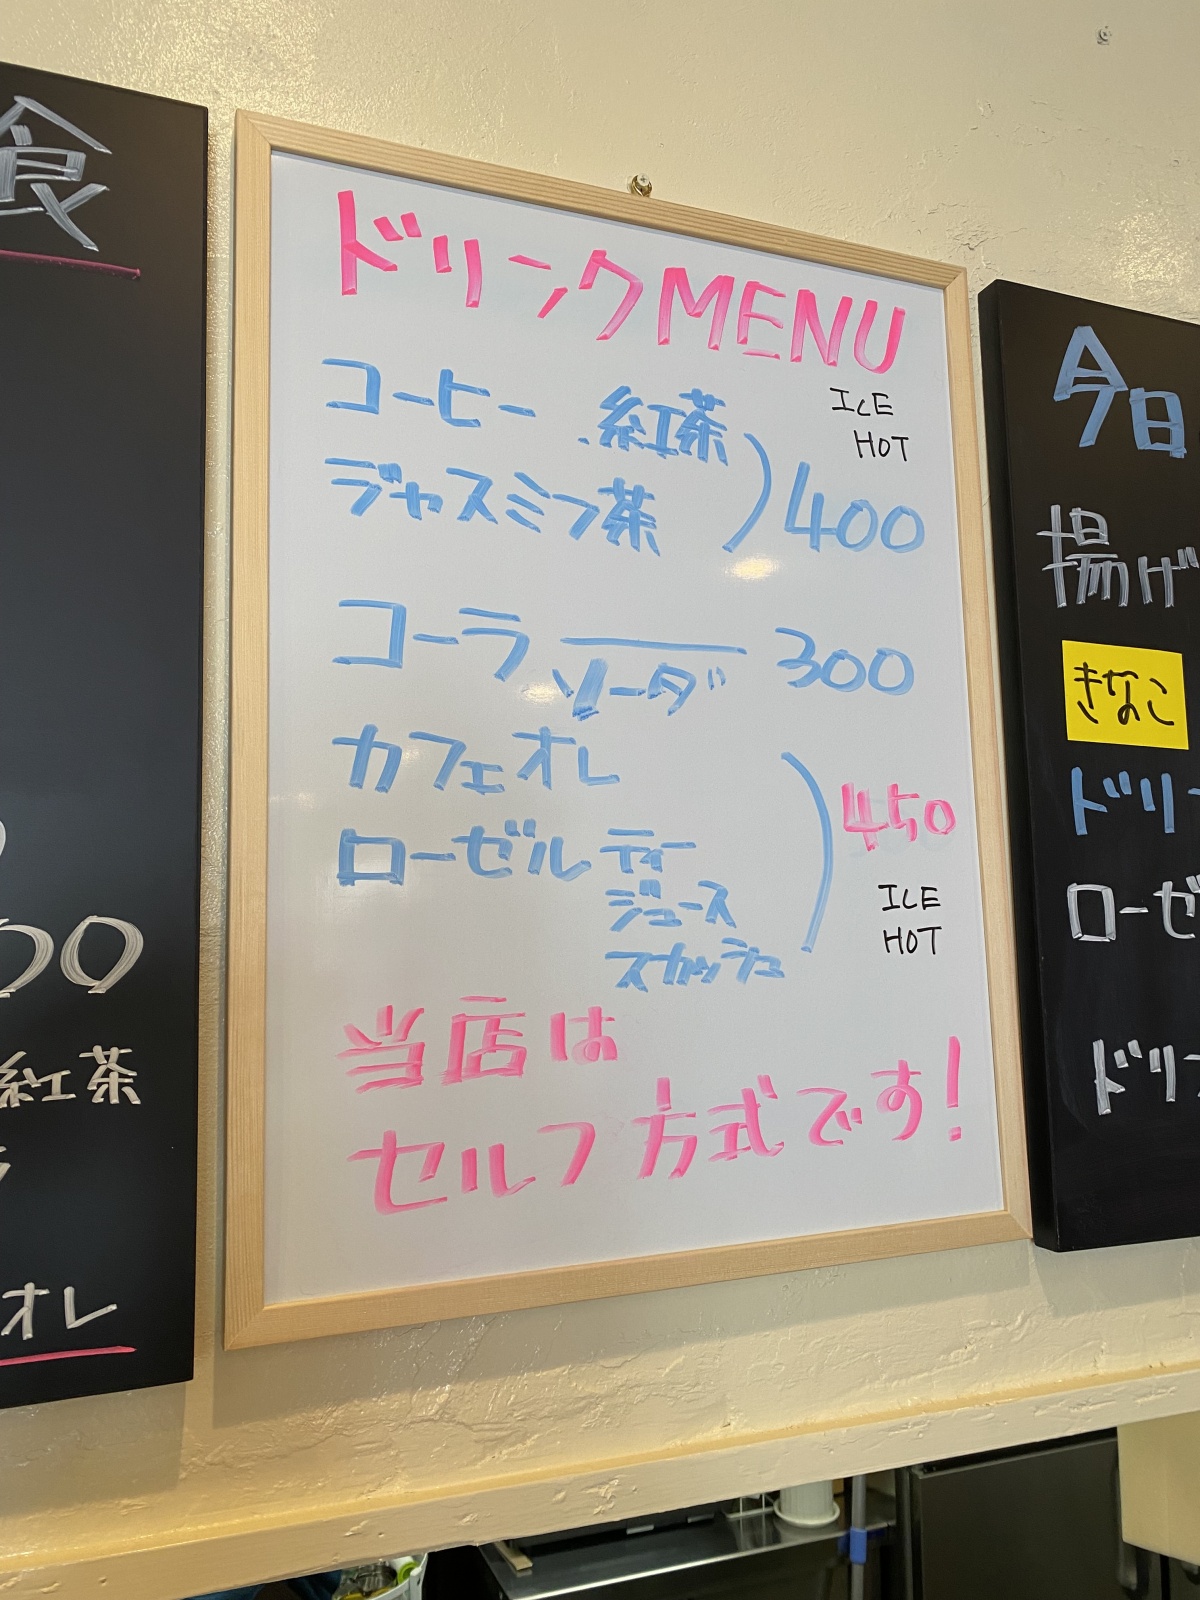 食
00
紅茶
オレ
ドリンクMENU
コーヒー、紅茶
ICE
HOT
ジャスミン茶
400
コーラ
300
ソーダ
カフェオレ
450
ローゼル ティー
ジュース
スカッシュ
ICE
HOT
当店は
セルフ方式です!
今日
揚げ
きなこ
ドリン
ローゼ
ドリン